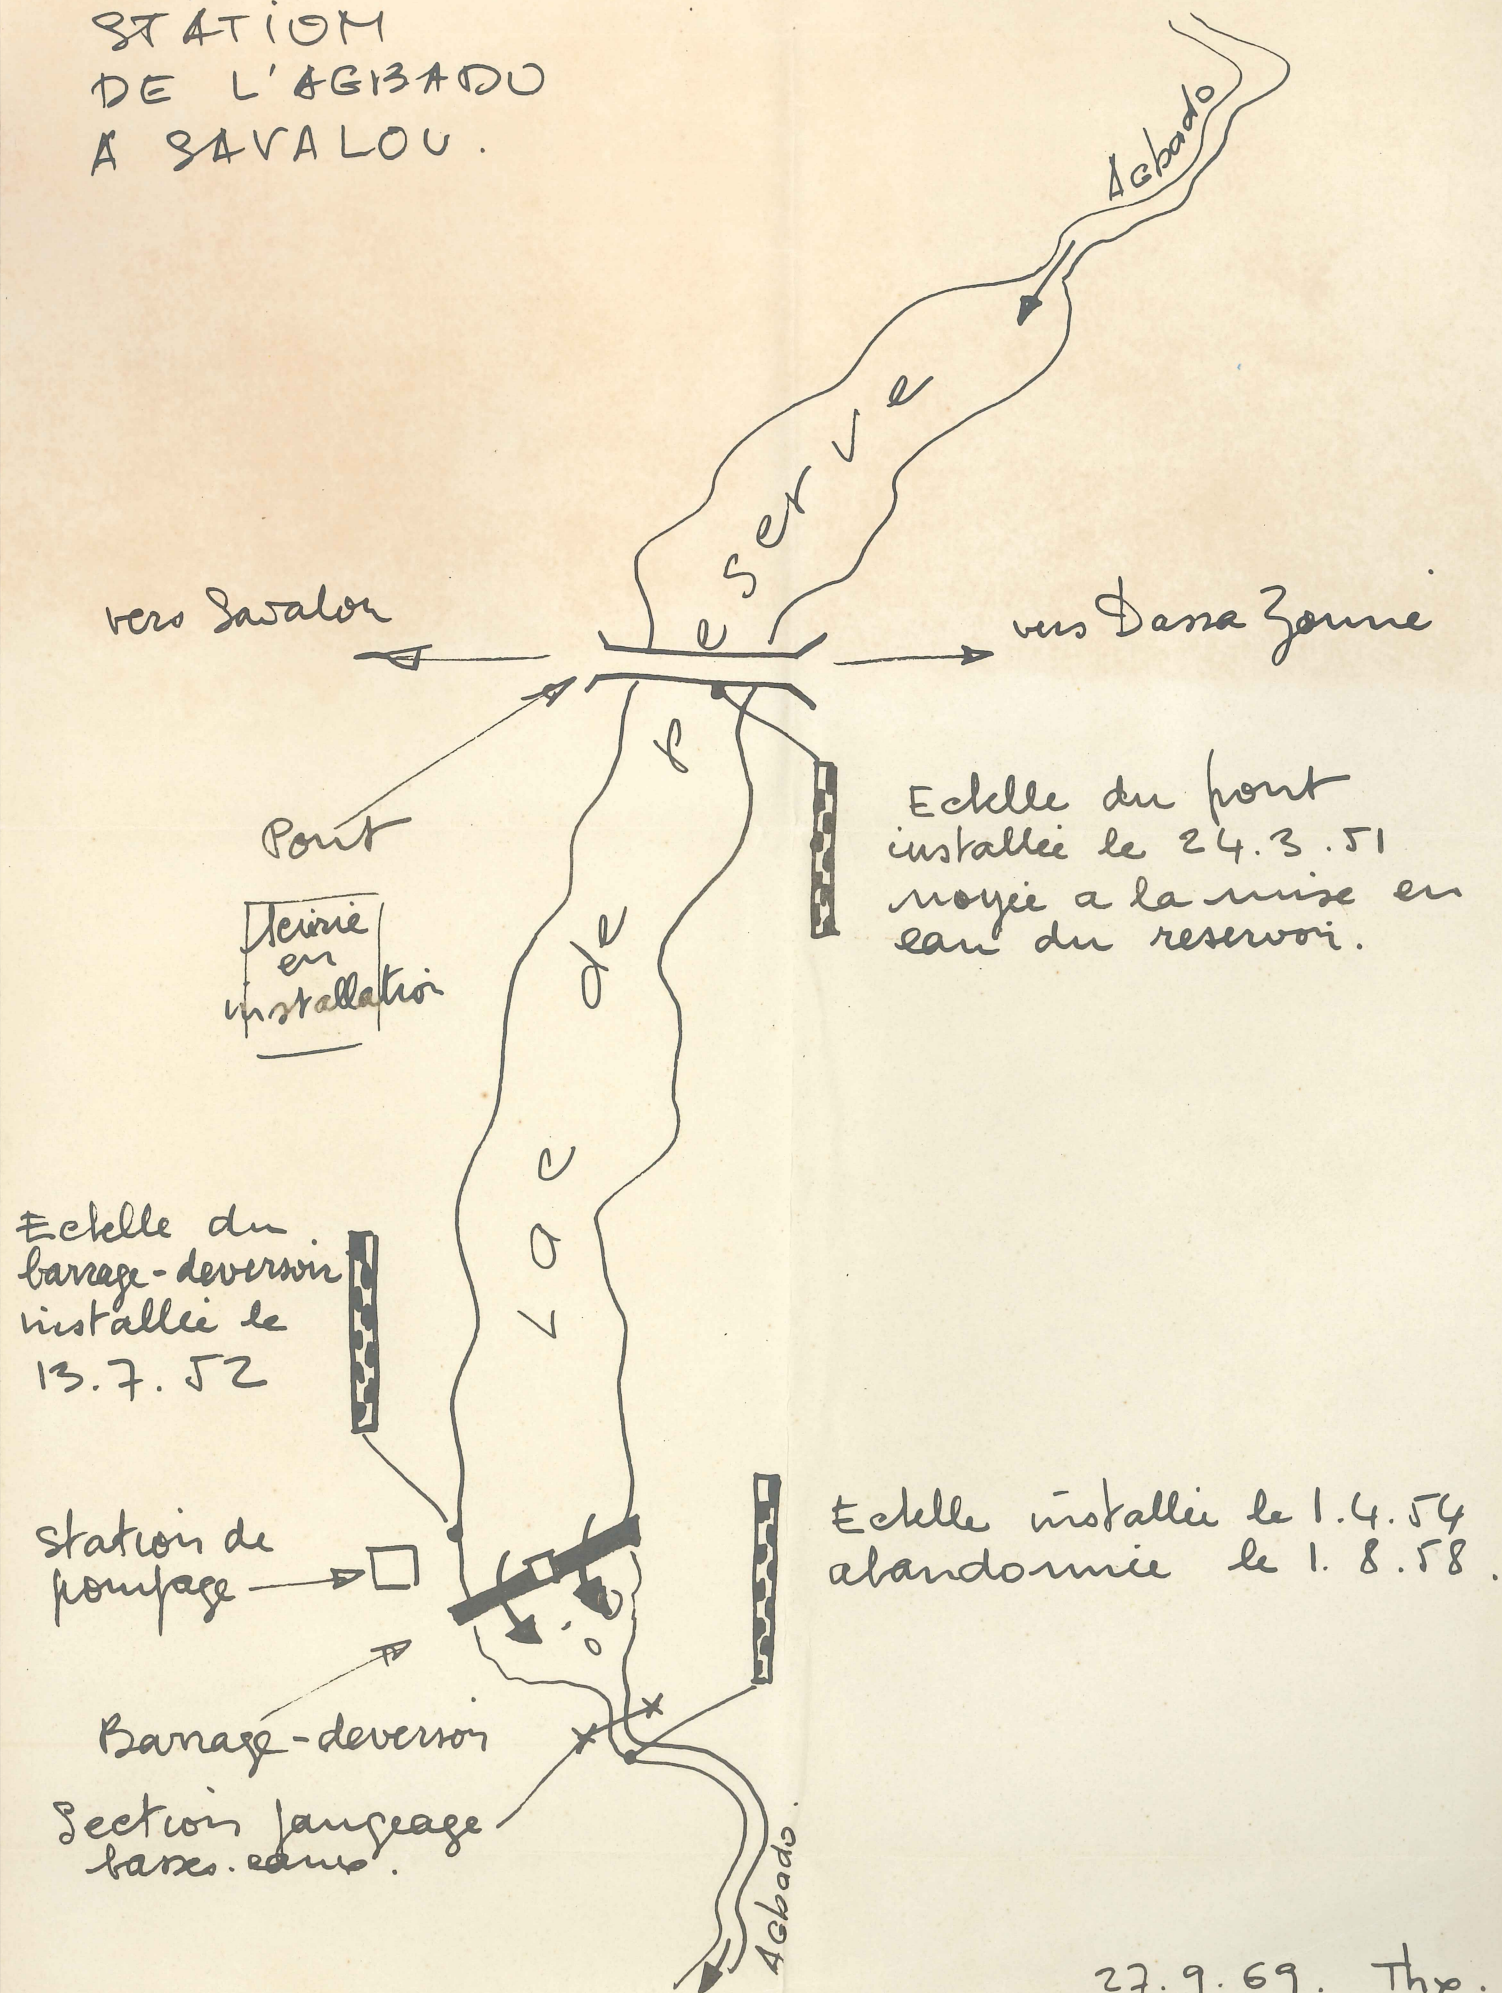 STATION
DE L'AGBADO
A SAVALOU.
Agbado
vers Savalou
vers Dassa Zoumé
Pont
Echelle du pont
installée le 24.3.51
noyée a la mise en
eau du reservoir.
en
installation
Lac de reserve
Echelle du
barrage-deversoir
installée le
13.7.52
Station de
pompage
Echelle installée le 1.4.54
abandonnée le 1.8.58.
Barrage-deversoir
Section jaugeage
basses-eaux.
Agbado.
27.9.69.